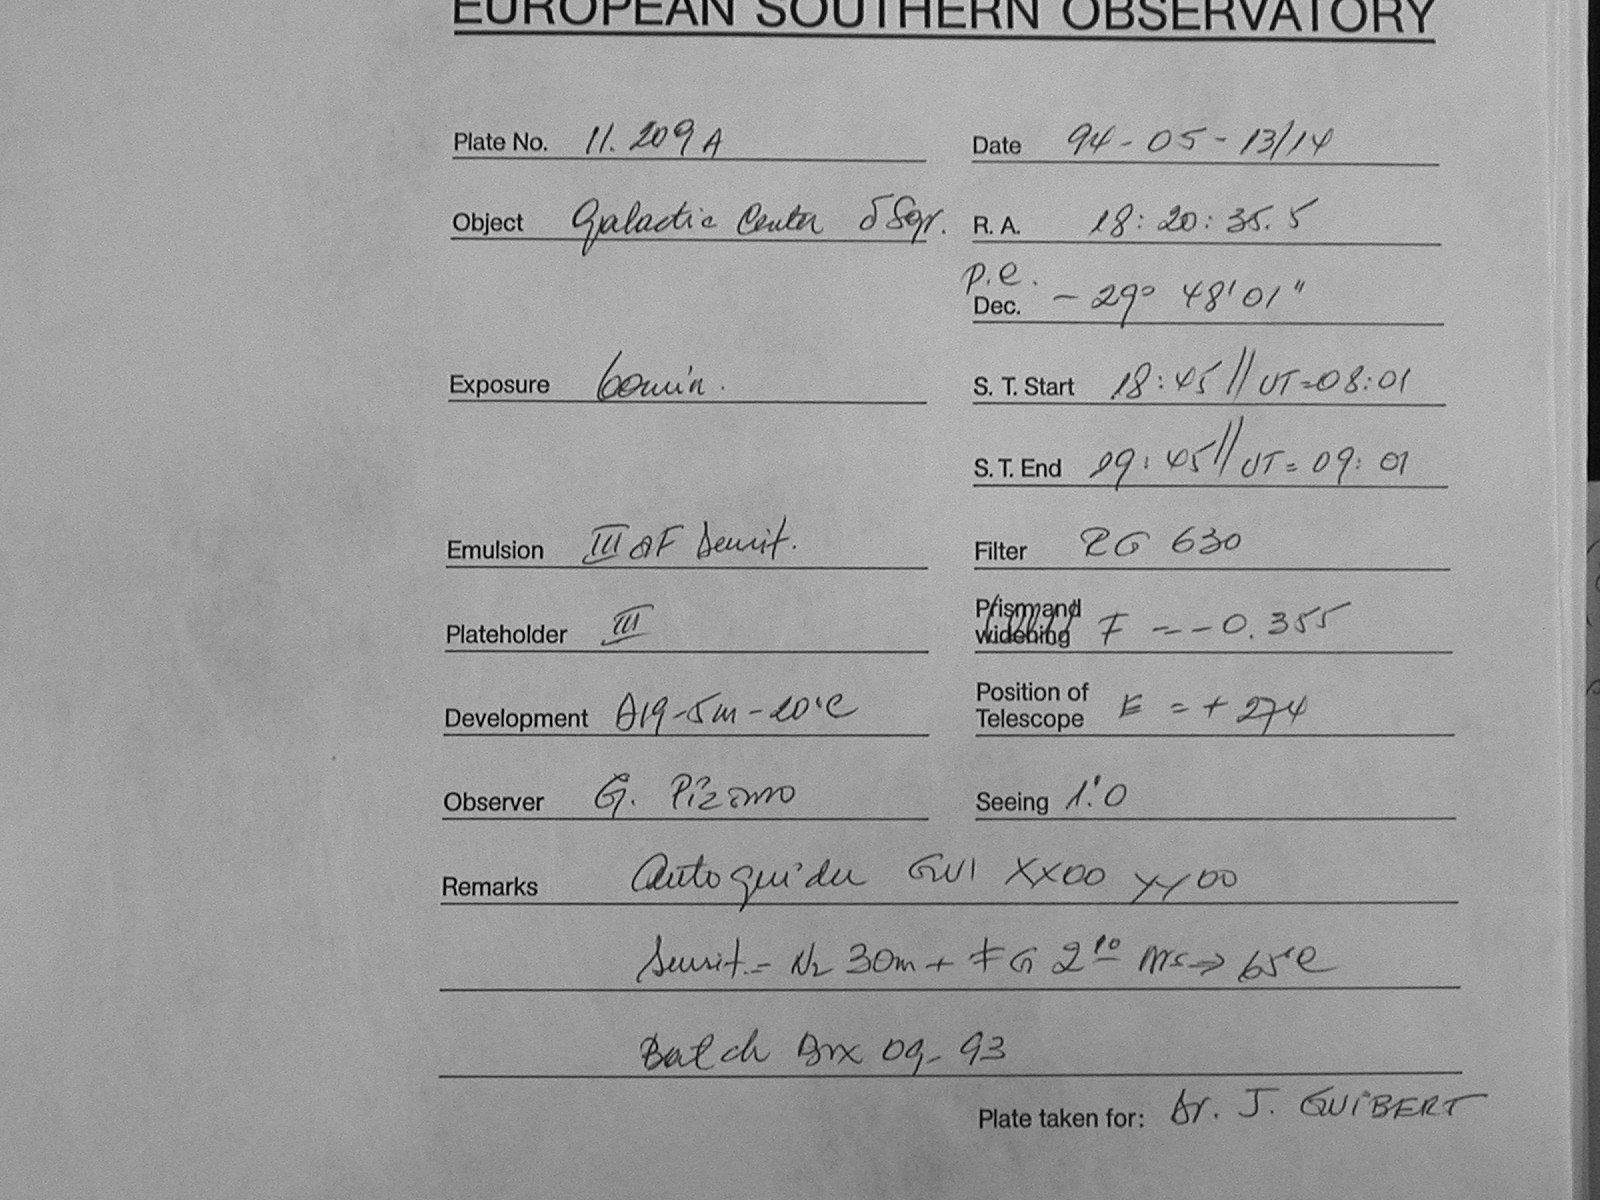 EUROPEAN SOUTHERN OBSERVATORY
Plate No. 11.209A Date 94-05-13/14
Object Galactic Center δ Sgr. R. A. 18:20:35.5
p.e.
Dec. -29° 48'01"
Exposure 60min. S. T. Start 18:45 // UT=08:01
S. T. End 19:45 // UT=09:01
Emulsion III aF Sensit. Filter RG 630
Plateholder III Prism and widening F = -0.355
Development D19-5m-20°C Position of Telescope E = +274
Observer G. Pizarro Seeing 1".0
Remarks Autoguider GUI XX00 YY00
Sensit.= N2 30m + FG 2 10 hrs → 65°C
Batch 09-93
Plate taken for: Dr. J. GUIBERT